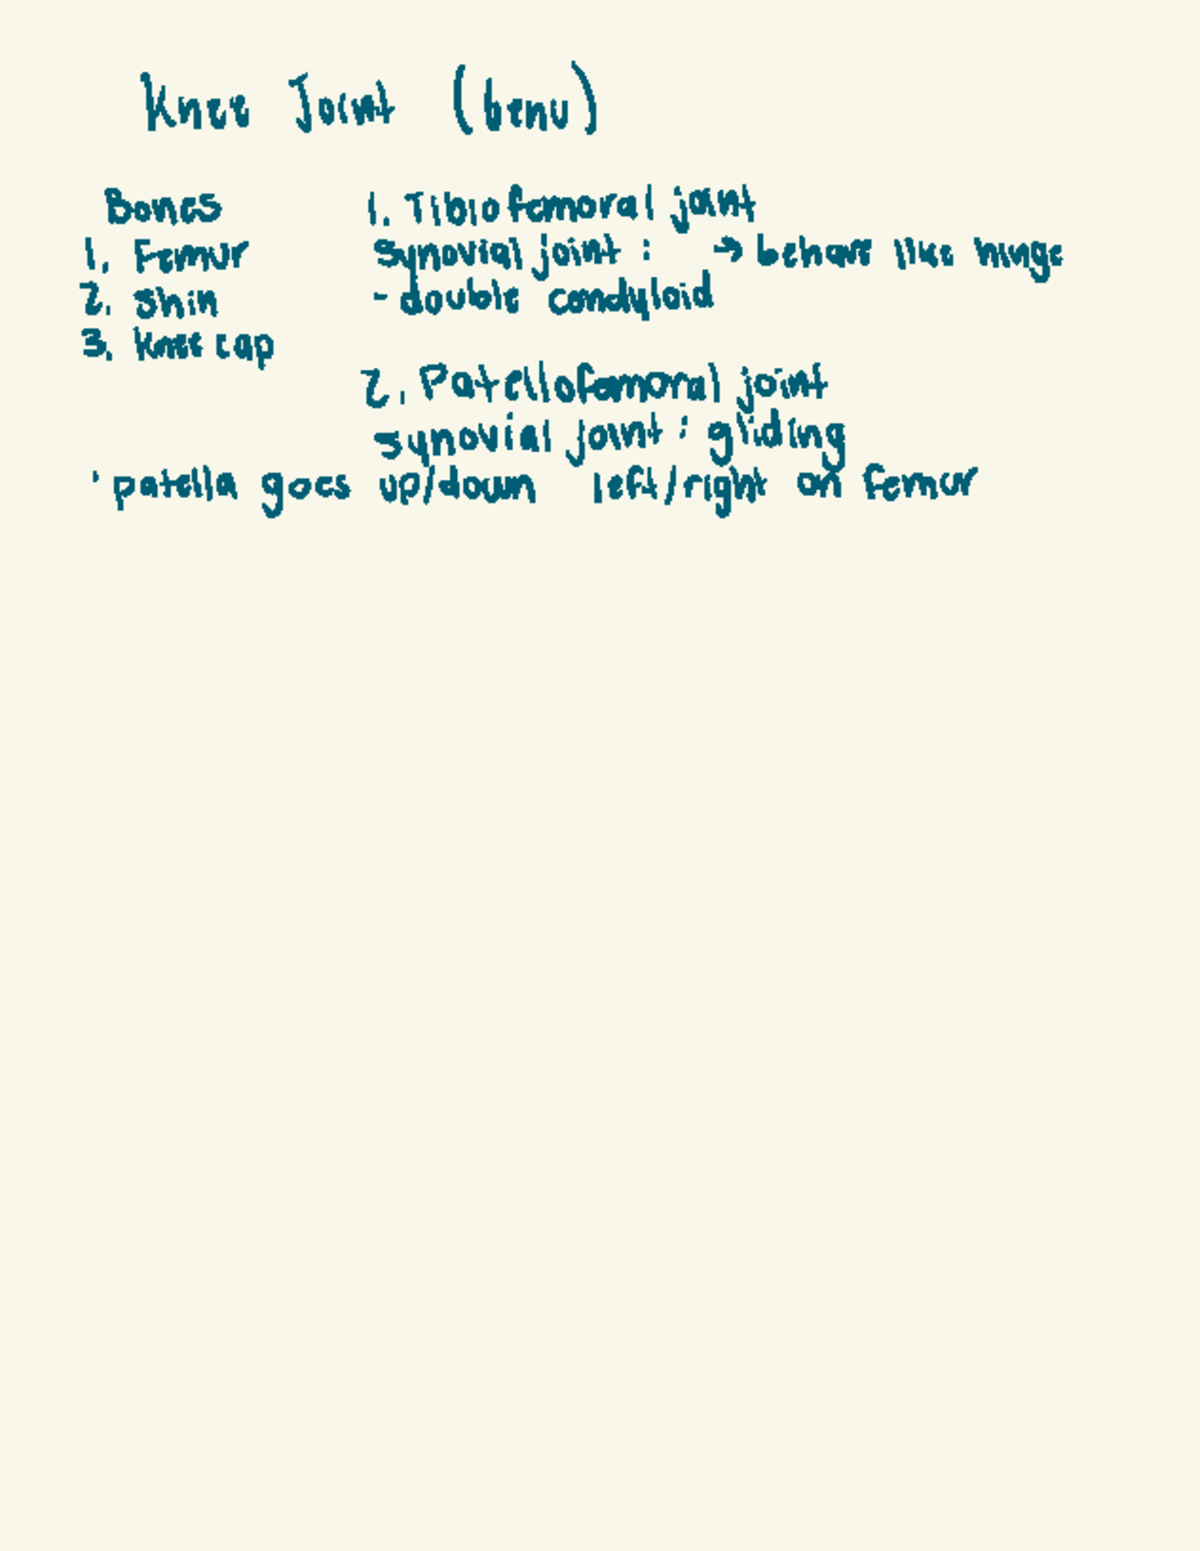 Knee Joint (genu)
Bones
1. Femur
2. Shin
3. knee cap
1. Tibiofemoral joint
synovial joint : → behave like hinge
- double condyloid
2. Patellofemoral joint
synovial joint : gliding
· patella goes up/down left/right on femur